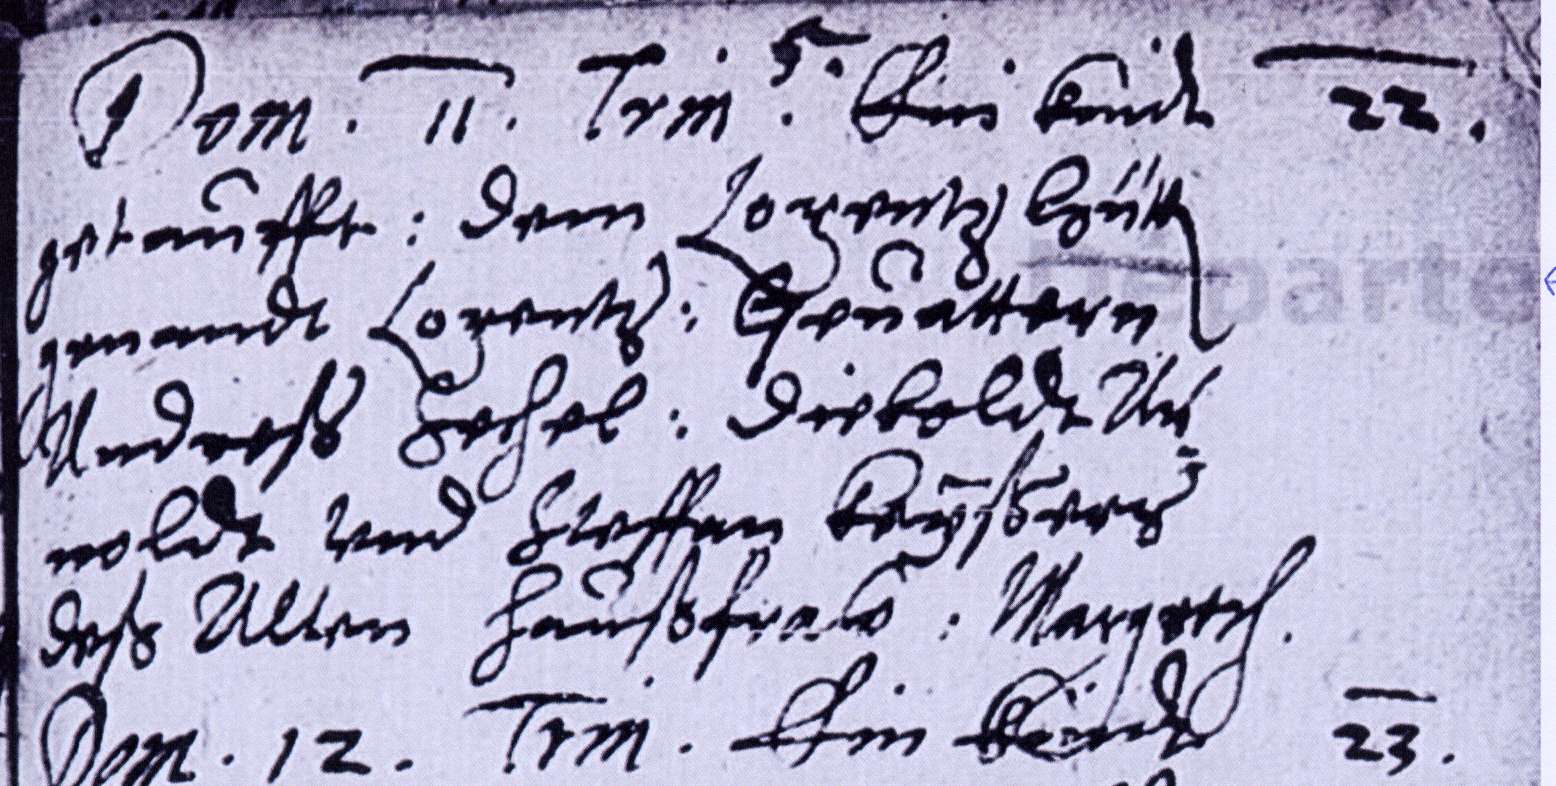 Dom. 11. Trin. 5. Ein Kindt 22.
getaufft: dem Lorentz Hütt
genandt Lorentz: Gevattern
Andreß Hechel: Dieboldt Ar
noldt vnd Steffan Keyßers
deß Alten Haußfraw: Margreth.
Dom. 12. Trin. Ein Kindt 23.